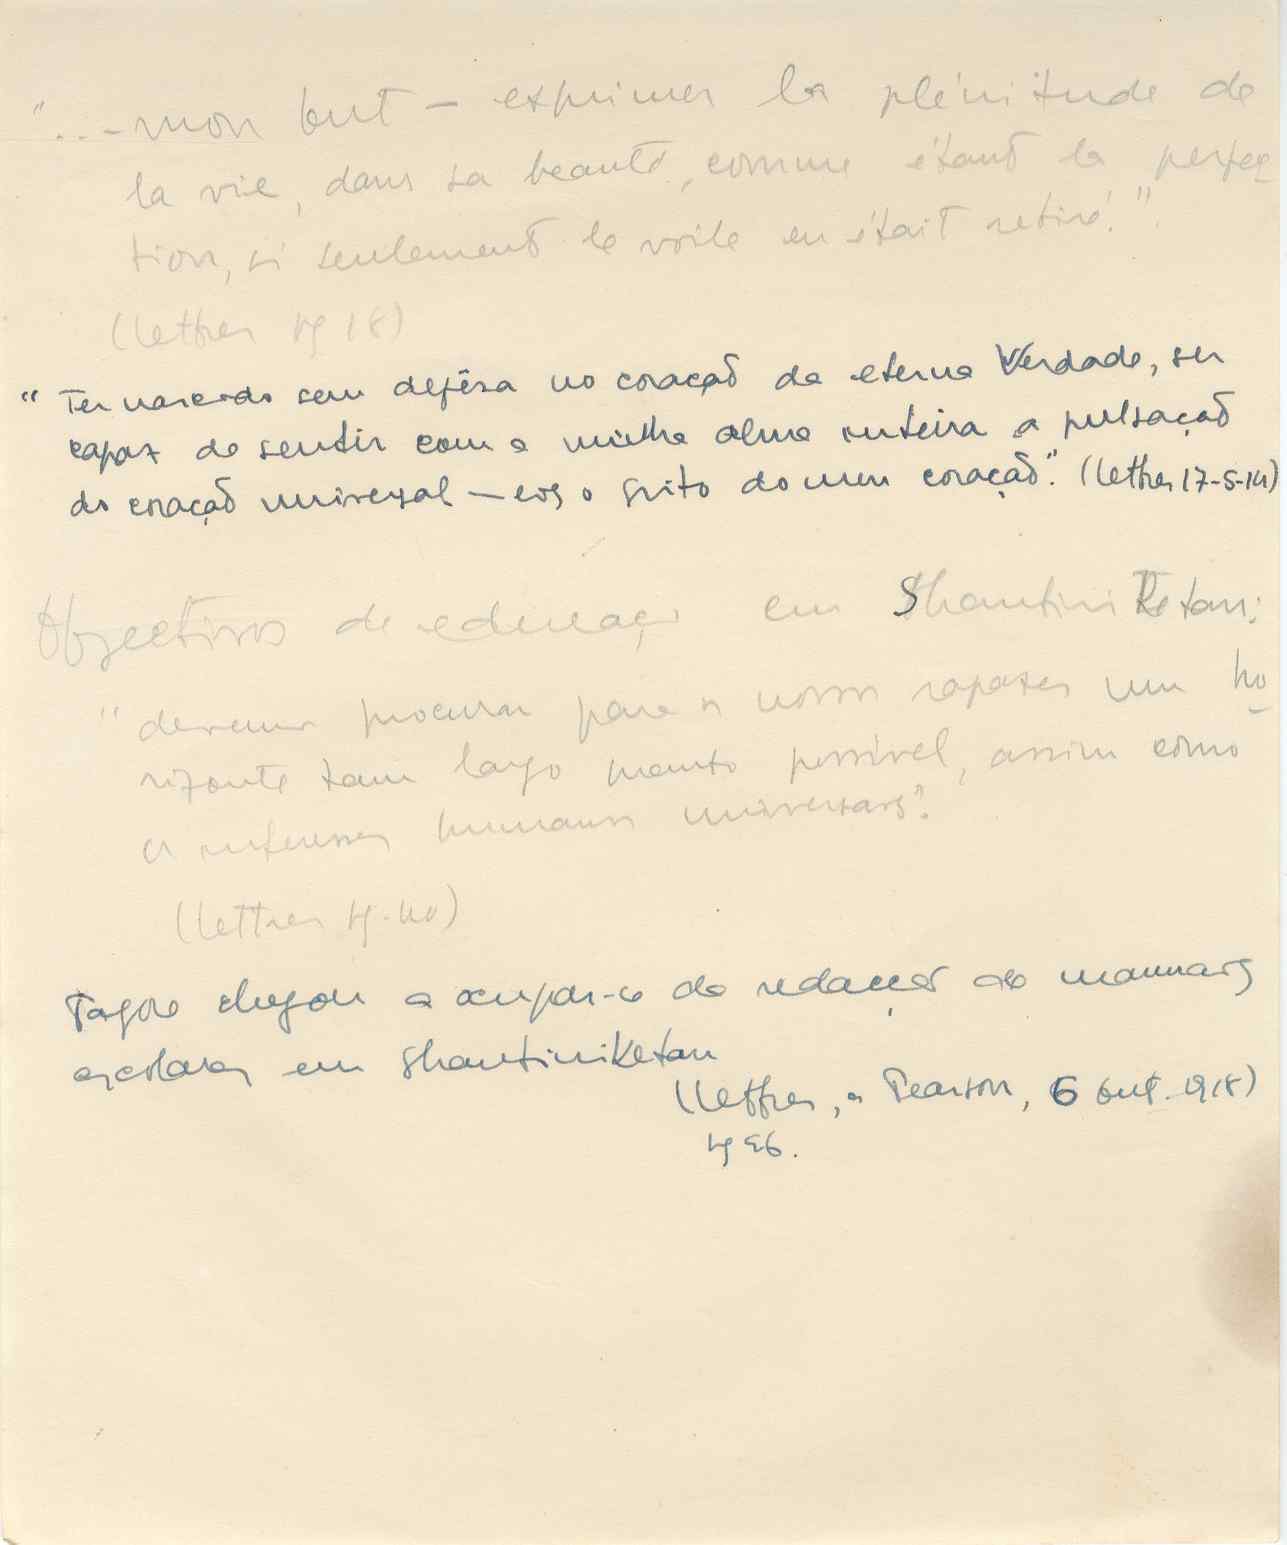 "...- mon but — exprimer la plénitude de
la vie, dans sa beauté, comme étant la perfec
tion, si seulement le voile en était retiré."
(Lettres pg 18)
"Ter nascido sem defêsa no coração da eterna Verdade, ser
capaz de sentir com a minha alma inteira a pulsação
do coração universal — eis o grito do meu coração." (Lettres 17-5-14)
Objectivos de educação em Shantiniketan:
"devemos procurar para os nossos rapazes um ho
rizonte tam largo quanto possível, assim como
os interesses humanos universais".
(Lettres pg. 40)
Tagore chegou a ocupar-se da redacção de manuais
escolares em Shantiniketan
(Lettres, a Pearson, 6 Out. 1918)
pg 56.